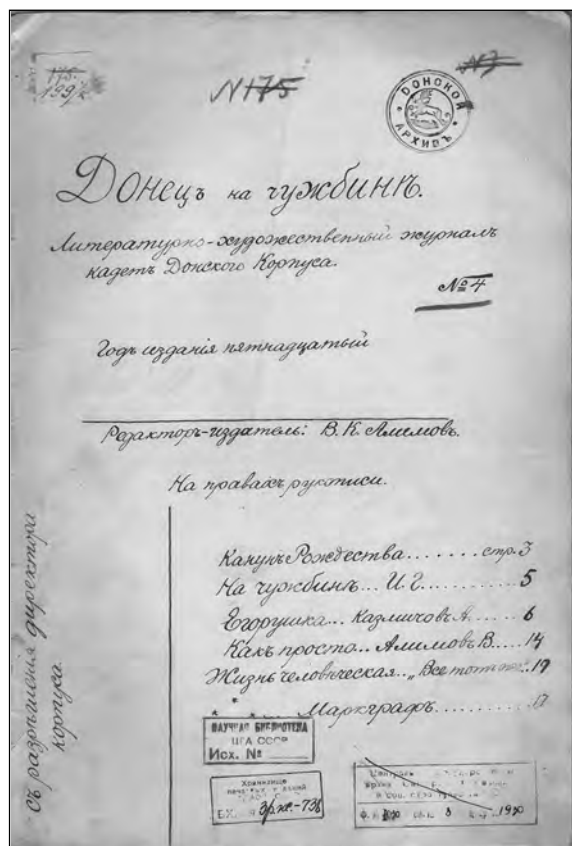 № 175
ДОНСКОЙ АРХИВЪ
Донецъ на чужбинѣ.
Литературно-художественный журналъ
кадетъ Донского Корпуса.
№ 4
Годъ изданія пятнадцатый
Редакторъ-издатель: В. К. Алимовъ.
На правахъ рукописи.
Съ разрѣшенія директора
корпуса.
Канунъ Рождества....... стр. 3
На чужбинѣ... И. Г. .......... 5
Егорушка... Казмичовъ А. ..... 6
Какъ просто... Алимовъ В. .... 14
Жизнь человѣческая.. „Все тотъ же"..
* * * ... Маркграфъ ......... 17
НАУЧНАЯ БИБЛИОТЕКА
ЦГА СССР
Исх. №
Хранилище